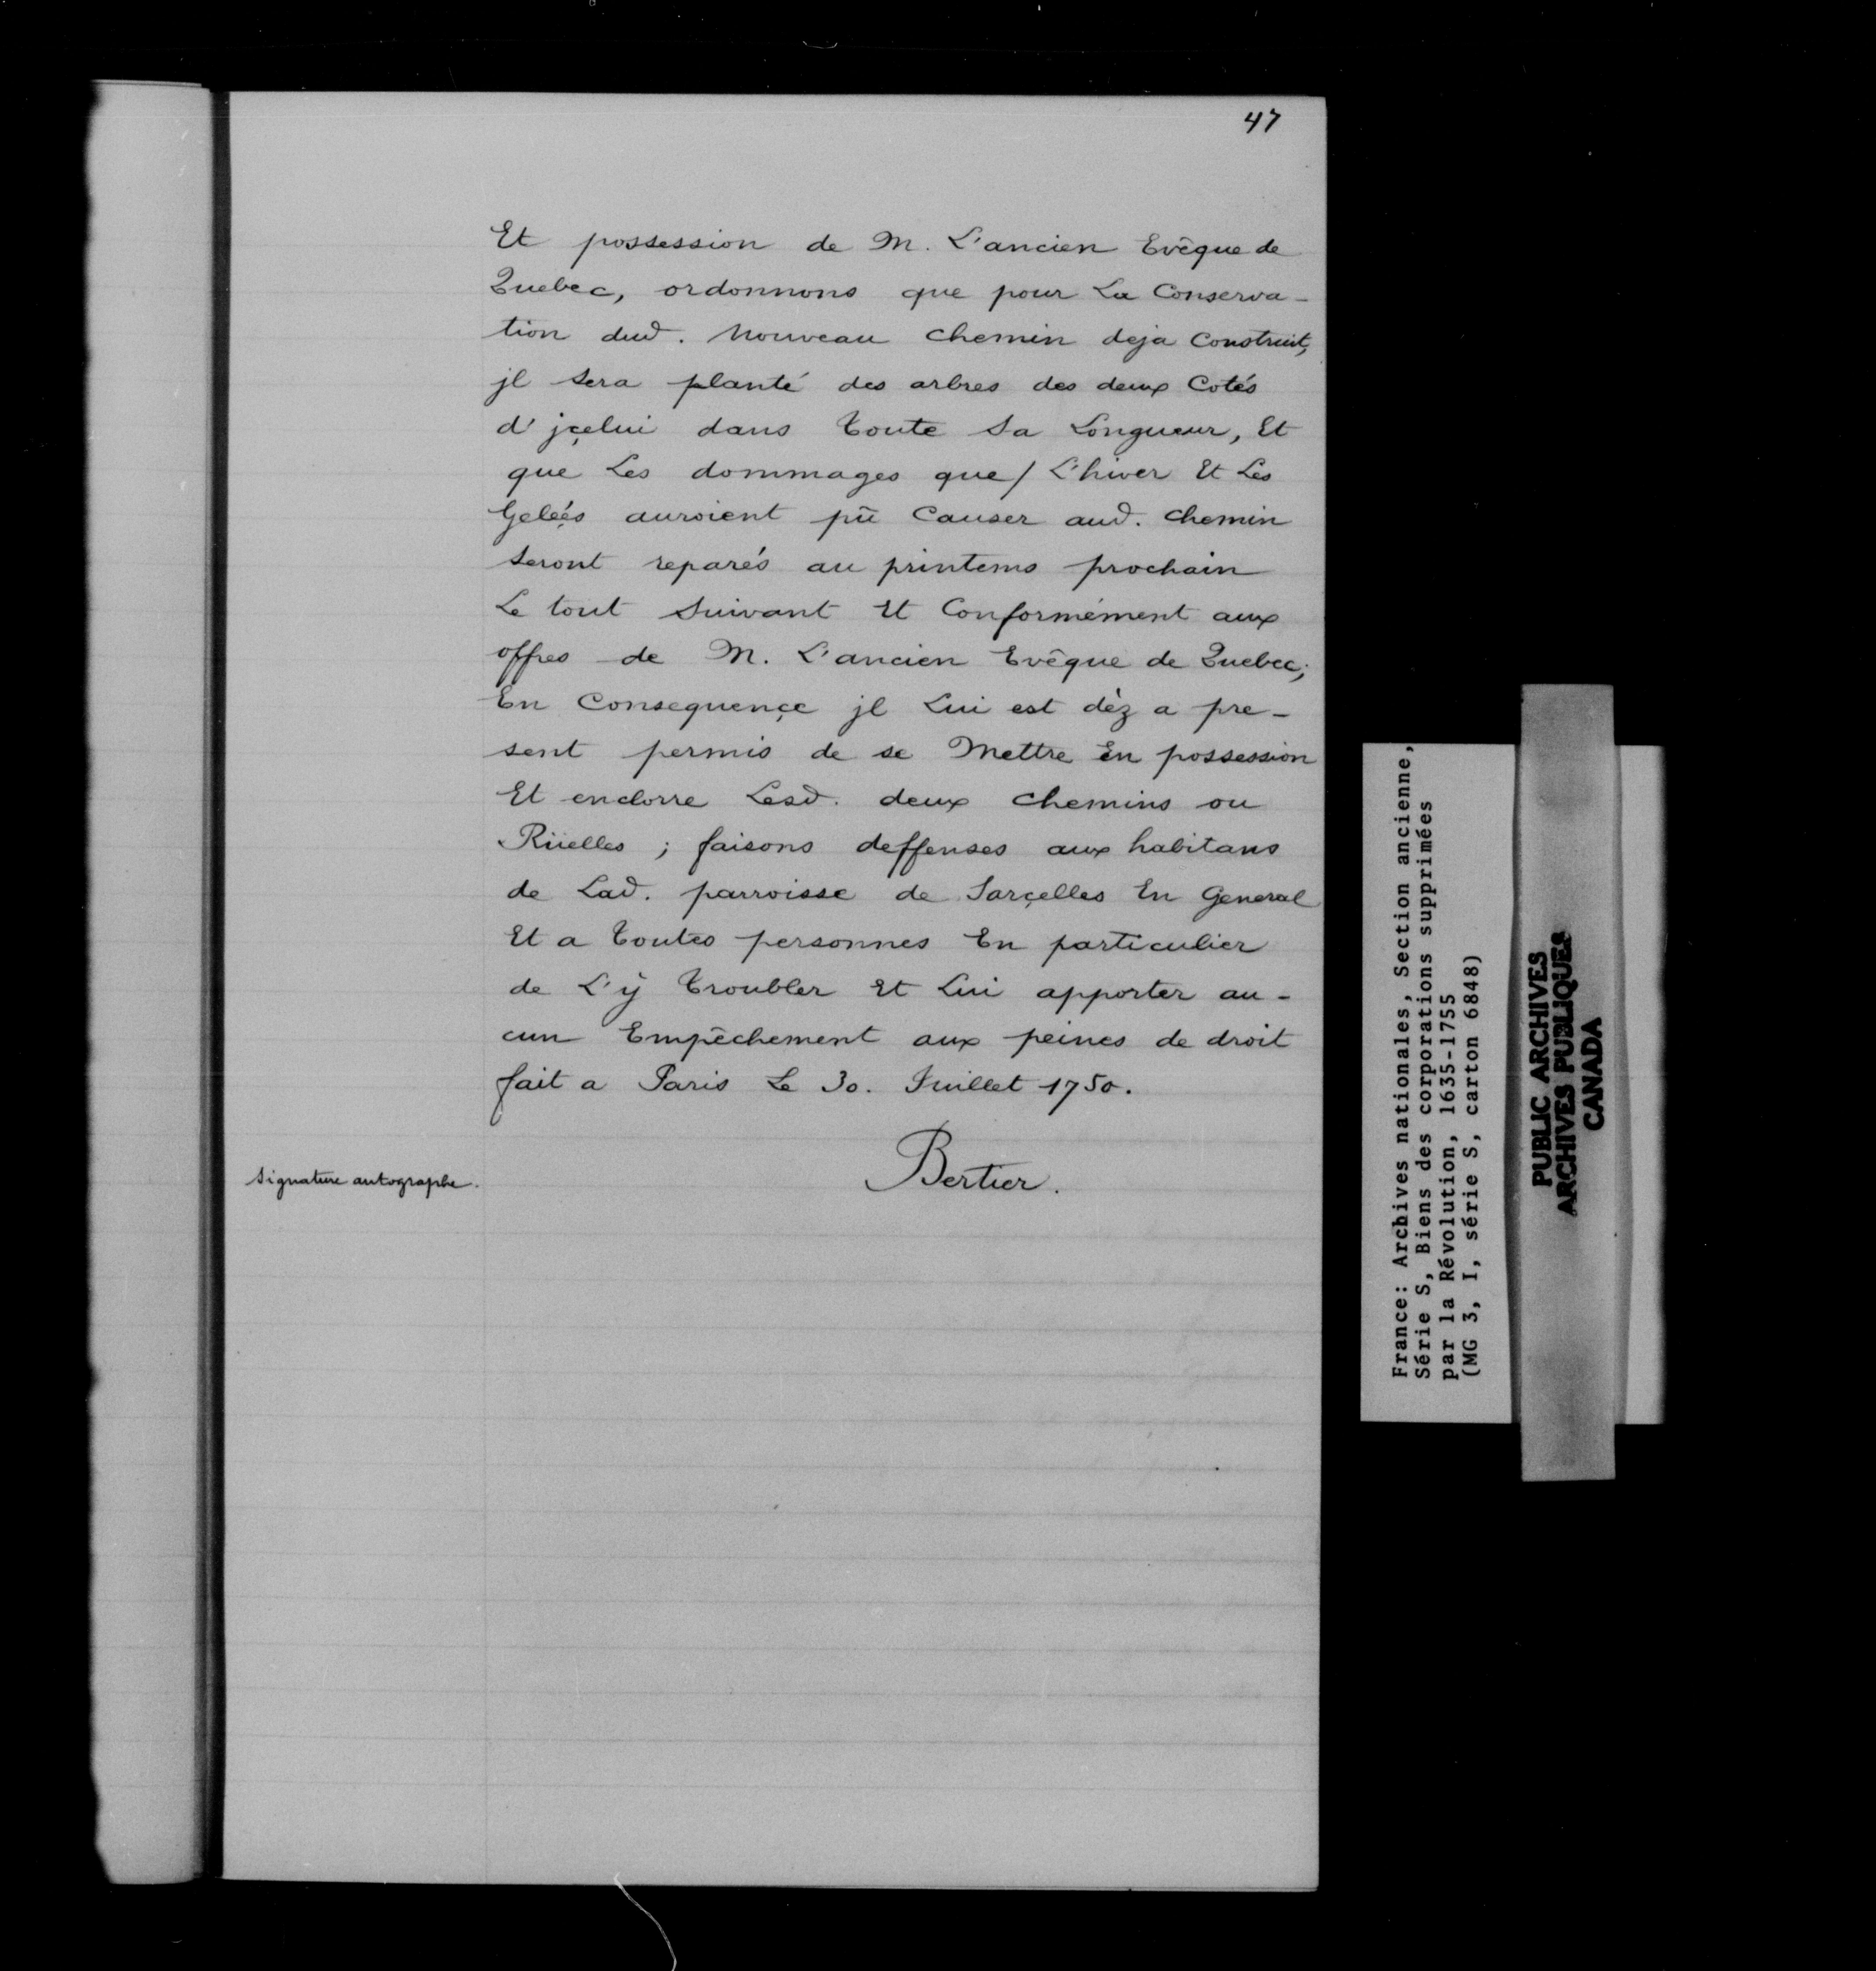 47
Et possession de M. L'ancien Evêque de
Quebec, ordonnons que pour La Conserva-
tion dud. Nouveau chemin deja Construit,
jl sera planté des arbres des deux Cotés
d'jçelui dans toute sa Longueur, Et
que Les dommages que/ L'hiver Et Les
Gelées auroient pû Causer aud. chemin
seront reparés au printems prochain
Le tout suivant Et Conformément aux
offres de M. L'ancien Evêque de Quebec;
En Consequençe jl Lui est dèz a pre-
sent permis de se Mettre En possession
Et enclorre Lesd. deux chemins ou
Rüelles ; faisons deffenses aux habitans
de Lad. parroisse de Sarçelles En General
Et a toutes personnes En particulier
de L'ÿ troubler Et Lui apporter au-
cun Empêchement aux peines de droit
fait a Paris Le 30. Juillet 1750.
Bertier.
Signature autographe.
France: Archives nationales, Section ancienne,
Série S, Biens des corporations supprimées
par la Révolution, 1635-1755
(MG 3, I, série S, carton 6848)
PUBLIC ARCHIVES
ARCHIVES PUBLIQUES
CANADA